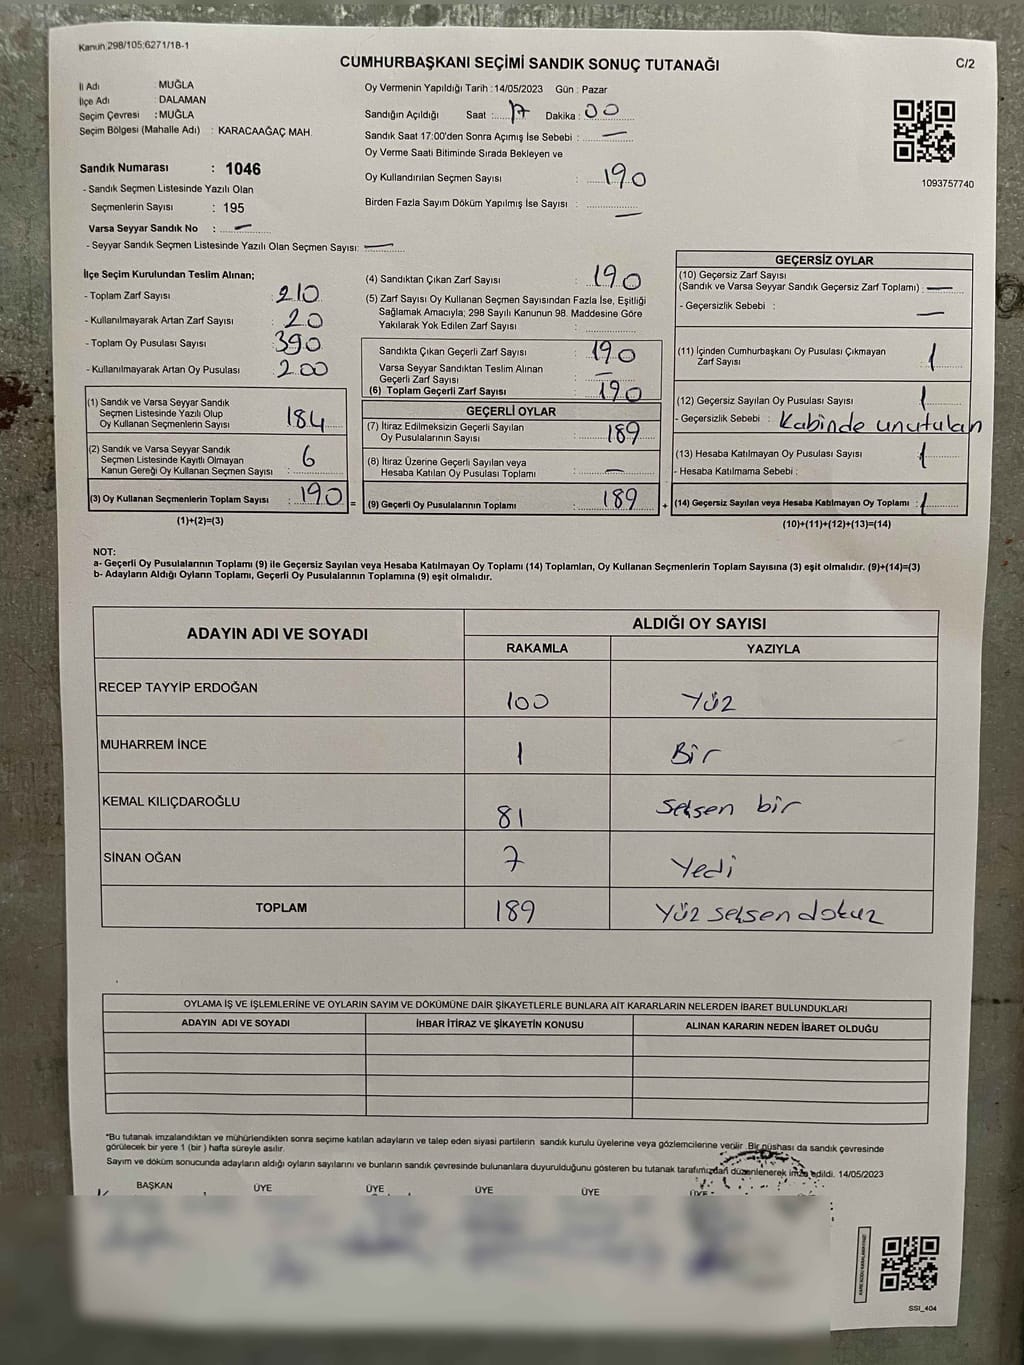 Kanun;298/105;6271/18-1
CUMHURBAŞKANI SEÇİMİ SANDIK SONUÇ TUTANAĞI
C/2
İl Adı : MUĞLA
İlçe Adı : DALAMAN
Seçim Çevresi : MUĞLA
Seçim Bölgesi (Mahalle Adı) : KARACAAĞAÇ MAH.
Sandık Numarası : 1046
- Sandık Seçmen Listesinde Yazılı Olan
Seçmenlerin Sayısı : 195
Varsa Seyyar Sandık No : —
- Seyyar Sandık Seçmen Listesinde Yazılı Olan Seçmen Sayısı: —
Oy Vermenin Yapıldığı Tarih :14/05/2023 Gün : Pazar
Sandığın Açıldığı Saat : 17 Dakika : 00
Sandık Saat 17:00'den Sonra Açımış İse Sebebi : —
Oy Verme Saati Bitiminde Sırada Bekleyen ve
Oy Kullandırılan Seçmen Sayısı : 190
Birden Fazla Sayım Döküm Yapılmış İse Sayısı : —
1093757740
İlçe Seçim Kurulundan Teslim Alınan;
- Toplam Zarf Sayısı : 210
- Kullanılmayarak Artan Zarf Sayısı : 20
- Toplam Oy Pusulası Sayısı : 390
- Kullanılmayarak Artan Oy Pusulası : 200
(1) Sandık ve Varsa Seyyar Sandık
Seçmen Listesinde Yazılı Olup
Oy Kullanan Seçmenlerin Sayısı : 184
(2) Sandık ve Varsa Seyyar Sandık
Seçmen Listesinde Kayıtlı Olmayan
Kanun Gereği Oy Kullanan Seçmen Sayısı : 6
(3) Oy Kullanan Seçmenlerin Toplam Sayısı : 190 =
(1)+(2)=(3)
(4) Sandıktan Çıkan Zarf Sayısı : 190
(5) Zarf Sayısı Oy Kullanan Seçmen Sayısından Fazla İse, Eşitliği
Sağlamak Amacıyla; 298 Sayılı Kanunun 98. Maddesine Göre
Yakılarak Yok Edilen Zarf Sayısı :
Sandıkta Çıkan Geçerli Zarf Sayısı : 190
Varsa Seyyar Sandıktan Teslim Alınan
Geçerli Zarf Sayısı : —
(6) Toplam Geçerli Zarf Sayısı : 190
GEÇERLİ OYLAR
(7) İtiraz Edilmeksizin Geçerli Sayılan
Oy Pusulalarının Sayısı : 189
(8) İtiraz Üzerine Geçerli Sayılan veya
Hesaba Katılan Oy Pusulası Toplamı : —
(9) Geçerli Oy Pusulalarının Toplamı : 189 +
GEÇERSİZ OYLAR
(10) Geçersiz Zarf Sayısı
(Sandık ve Varsa Seyyar Sandık Geçersiz Zarf Toplamı) : —
- Geçersizlik Sebebi : —
(11) İçinden Cumhurbaşkanı Oy Pusulası Çıkmayan
Zarf Sayısı : 1
(12) Geçersiz Sayılan Oy Pusulası Sayısı : 1
- Geçersizlik Sebebi : Kabinde unutulan
(13) Hesaba Katılmayan Oy Pusulası Sayısı : 1
- Hesaba Katılmama Sebebi :
(14) Geçersiz Sayılan veya Hesaba Katılmayan Oy Toplamı : 1
(10)+(11)+(12)+(13)=(14)
NOT:
a- Geçerli Oy Pusulalarının Toplamı (9) ile Geçersiz Sayılan veya Hesaba Katılmayan Oy Toplamı (14) Toplamları, Oy Kullanan Seçmenlerin Toplam Sayısına (3) eşit olmalıdır. (9)+(14)=(3)
b- Adayların Aldığı Oyların Toplamı, Geçerli Oy Pusulalarının Toplamına (9) eşit olmalıdır.
ADAYIN ADI VE SOYADI
ALDIĞI OY SAYISI
RAKAMLA YAZIYLA
RECEP TAYYİP ERDOĞAN 100 Yüz
MUHARREM İNCE 1 Bir
KEMAL KILIÇDAROĞLU 81 Seksen bir
SİNAN OĞAN 7 Yedi
TOPLAM 189 Yüz seksen dokuz
OYLAMA İŞ VE İŞLEMLERİNE VE OYLARIN SAYIM VE DÖKÜMÜNE DAİR ŞİKAYETLERLE BUNLARA AİT KARARLARIN NELERDEN İBARET BULUNDUKLARI
ADAYIN ADI VE SOYADI İHBAR İTİRAZ VE ŞİKAYETİN KONUSU ALINAN KARARIN NEDEN İBARET OLDUĞU
*Bu tutanak imzalandıktan ve mühürlendikten sonra seçime katılan adayların ve talep eden siyasi partilerin sandık kurulu üyelerine veya gözlemcilerine verilir. Bir nüshası da sandık çevresinde
görülecek bir yere 1 (bir) hafta süreyle asılır.
Sayım ve döküm sonucunda adayların aldığı oyların sayılarını ve bunların sandık çevresinde bulunanlara duyurulduğunu gösteren bu tutanak tarafımızdan düzenlenerek imza edildi. 14/05/2023
BAŞKAN ÜYE ÜYE ÜYE ÜYE ÜYE
SSI_404